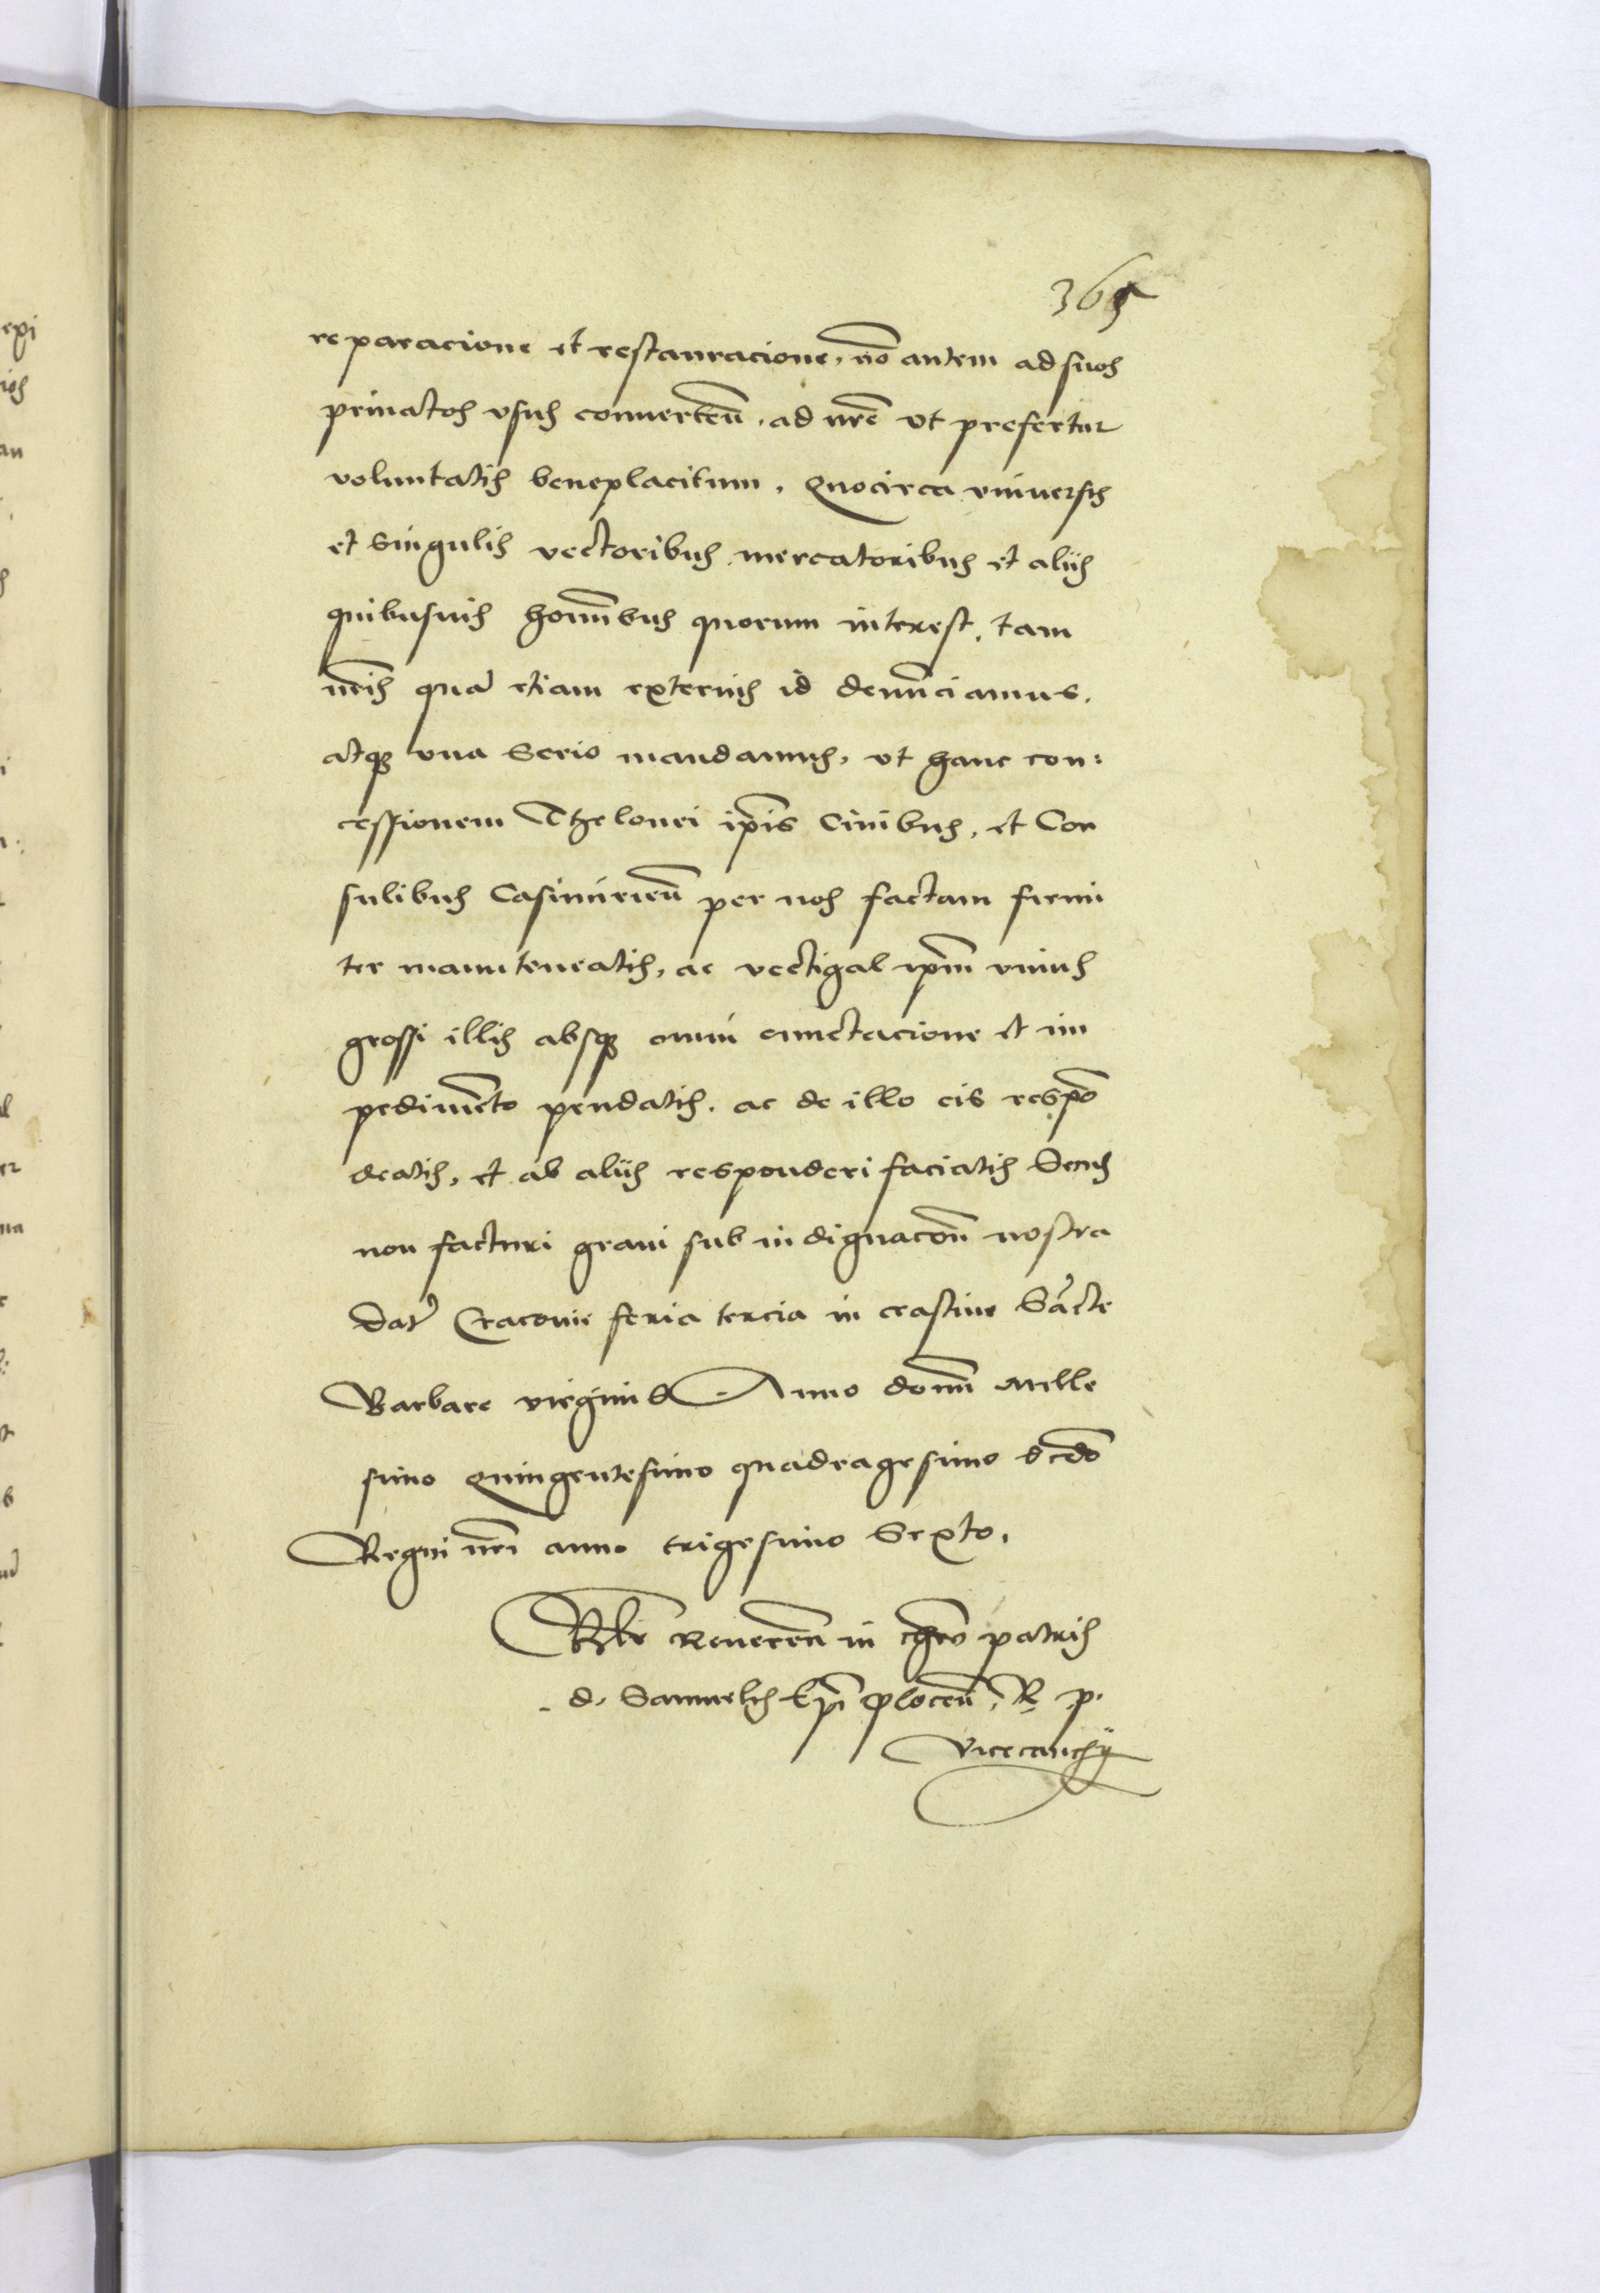 365
reparacione et restauracione, nō autem ad suos
priuatos vsus conuerteñ. ad nr̃e vt prefertur
voluntatis beneplacitum. Quocirca vniuersis
et singulis vectoribus mercatoribus et alijs
quibusuis homībus quorum interest, tam
nr̃is quā etiam externis id denūciamus.
atq3 vna serio mandamus, vt hanc con:
cessionem Thelonei ip̄is Ciuibus, et Con
sulibus Casimirieñ per nos factam firmi
ter manuteneatis, ac vectigal ip̄m vnius
grossi illis absq3 omni cunctacione et im
pedimēto pendatis. ac de illo eis respō
deatis, et ab alijs responderi faciatis Secus
non facturi graui sub indignacōn nostra
Dat' Cracouie feria tercia in crastino Sācte
Barbare virginis Anno domī Mille
simo Quingentesimo quadragesimo scd̄o
Regni nr̃i anno trigesimo Sexto.
Rl̃o Reuereñ in chr̄o patris
d. Samuelis Ep̄i Ploceñ, R. p.
Vicecanc̄ij